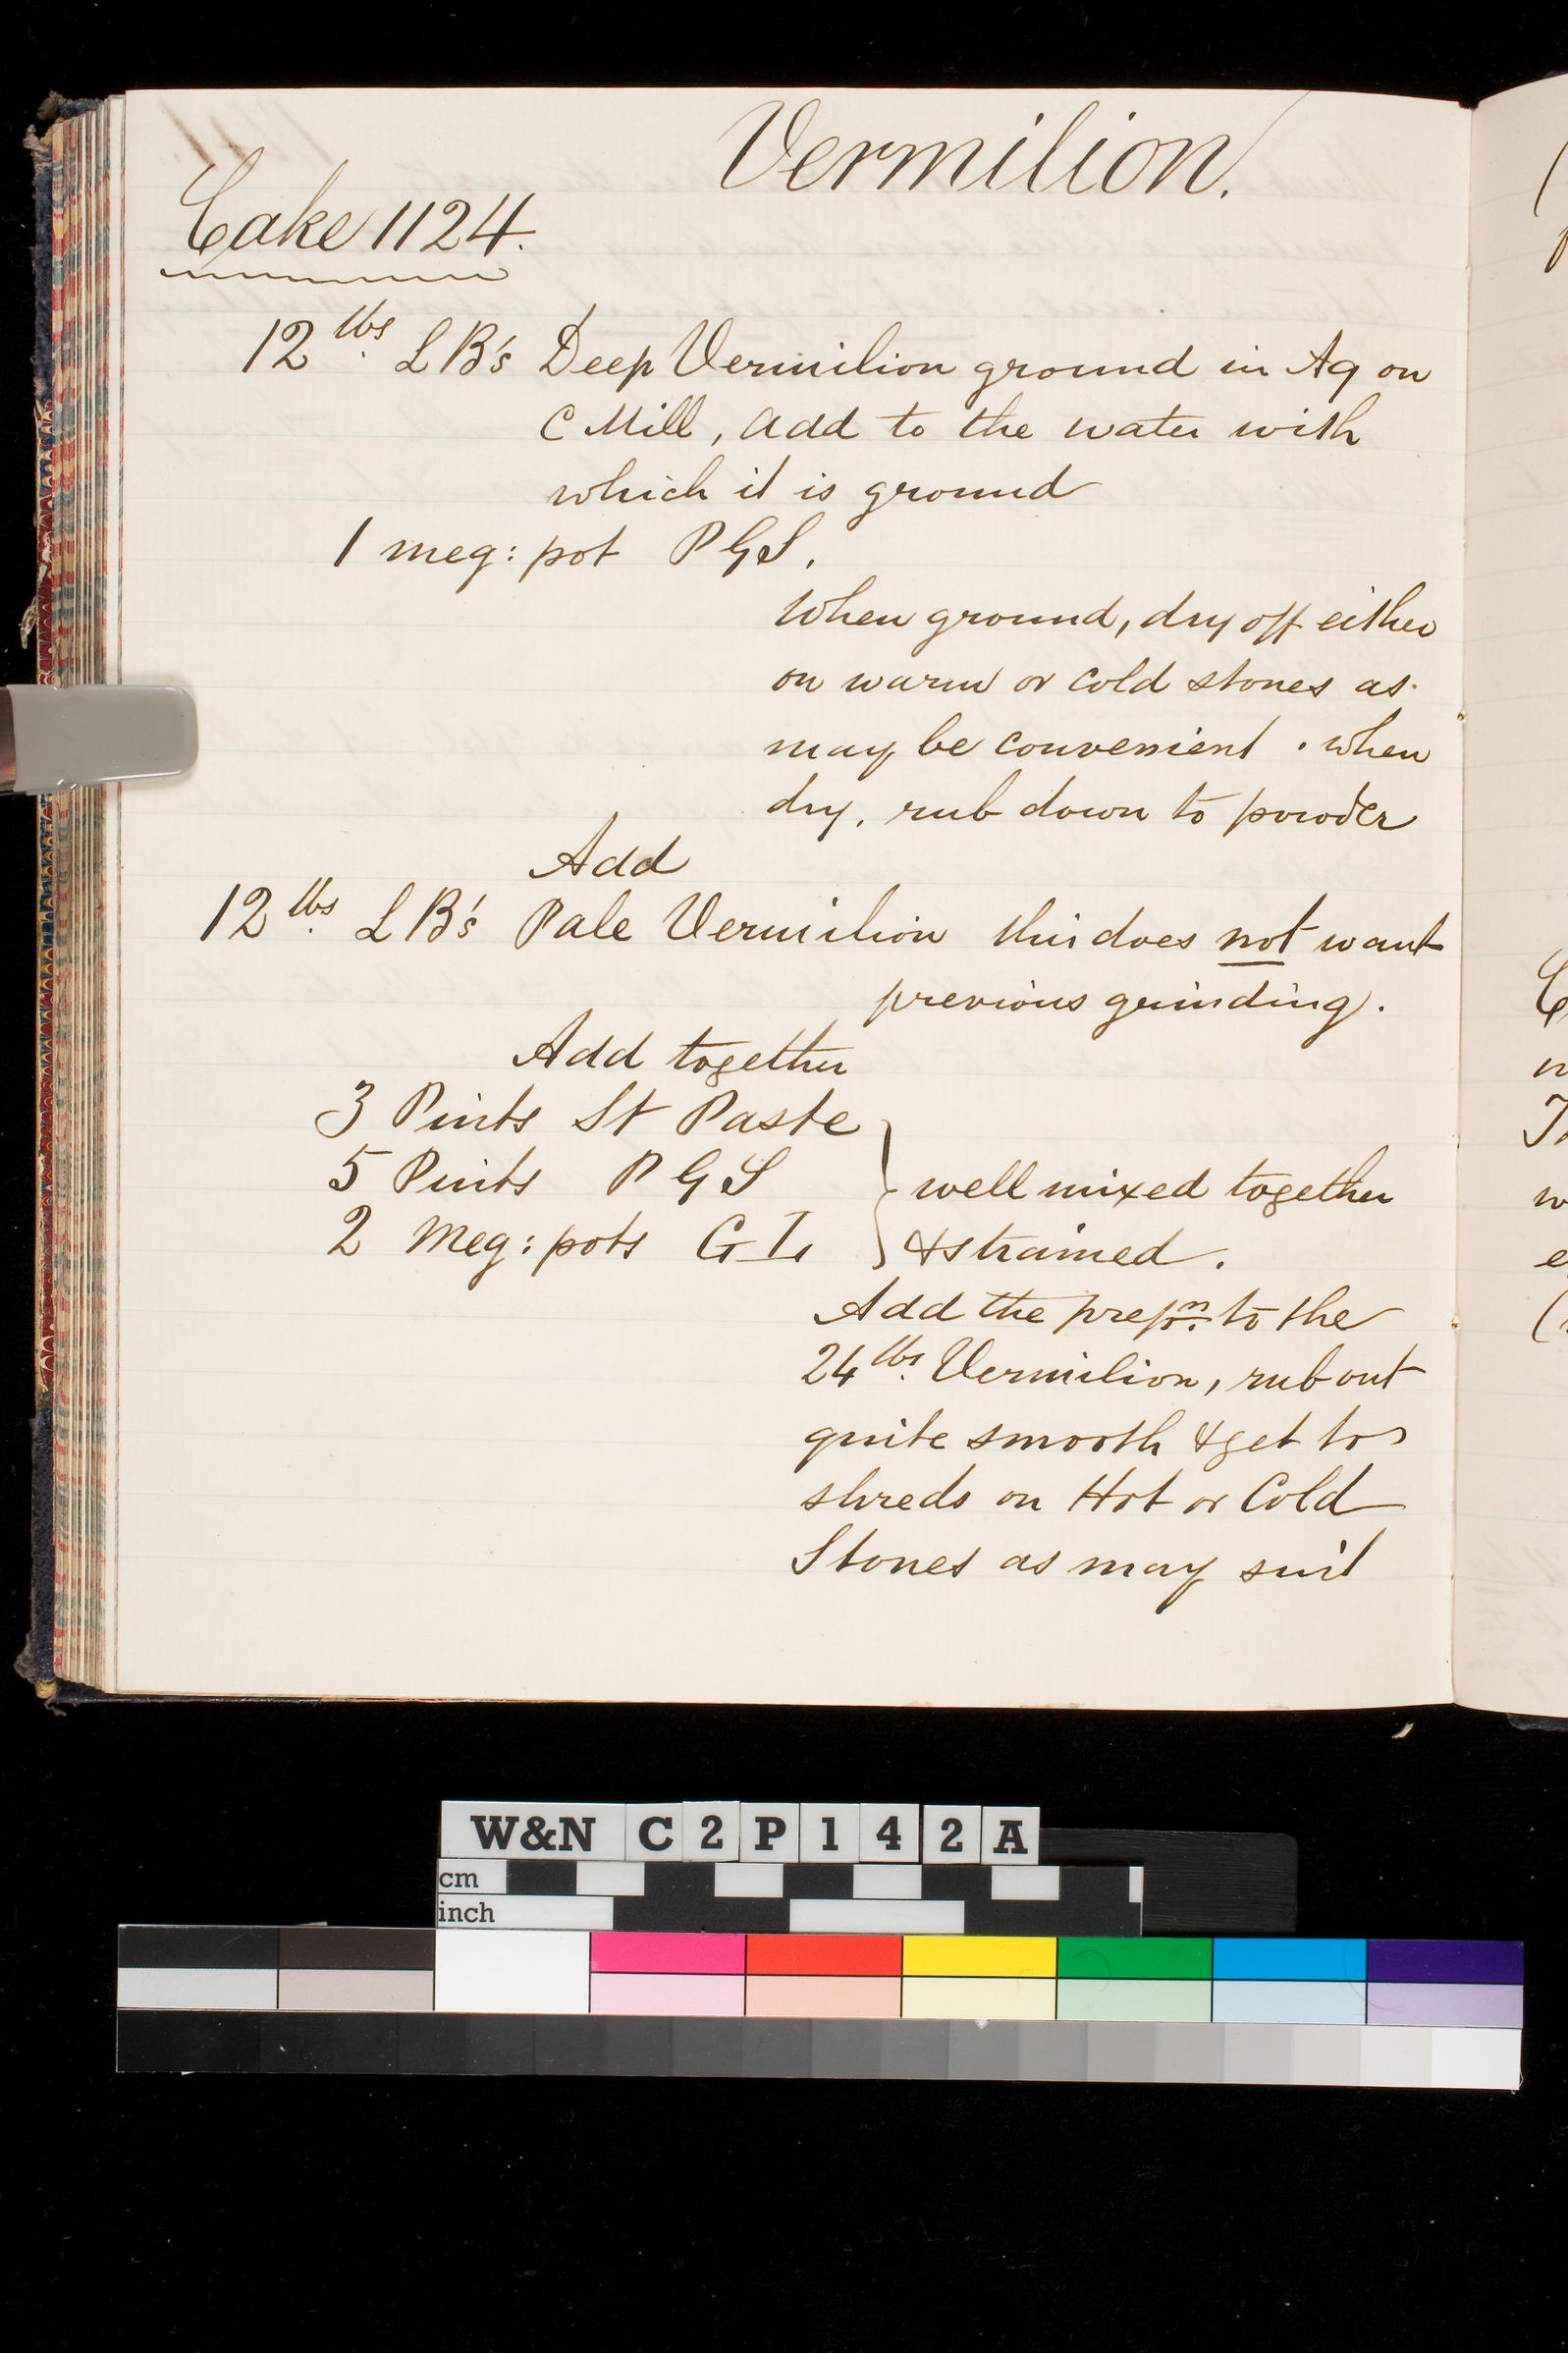 Vermilion.
Cake 1124.
12 lbs. L B's Deep Vermilion ground in Aq on
C Mill, add to the water with
which it is ground
1 meg: pot P G S.
When ground, dry off either
on warm or cold stones as
may be convenient . when
dry, rub down to powder
Add
12 lbs. L B's Pale Vermilion this does not want
previous grinding.
Add together
3 Pints St Paste
5 Pints P G S } well mixed together
2 Meg: pots G I, & strained.
Add the prepn. to the
24 lbs. Vermilion, rub out
quite smooth & get to
shreds on Hot or Cold
Stones as may suit
W&N C2P142A
cm
inch